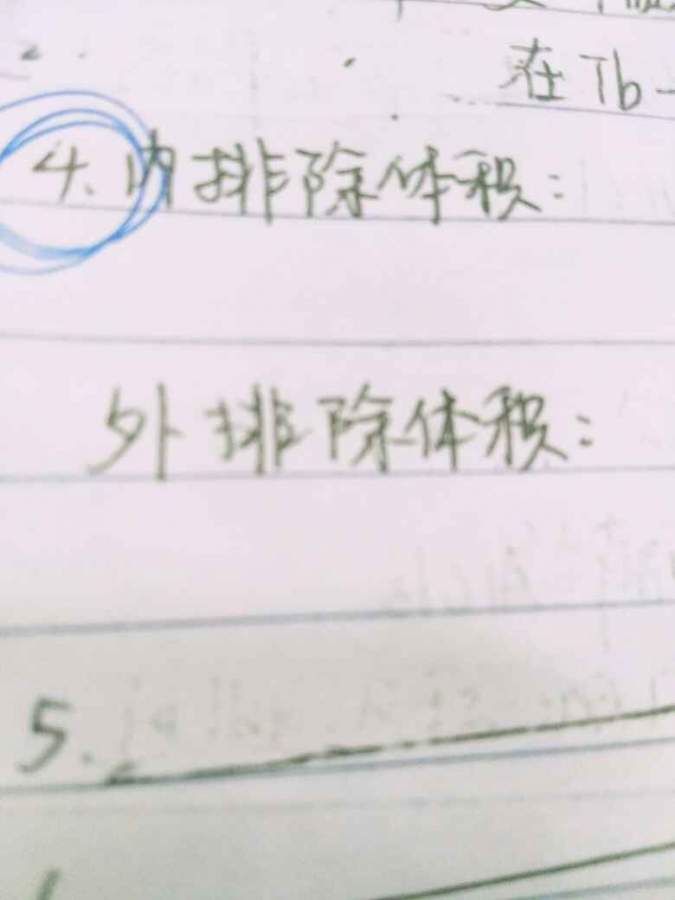 在Tb-
4.内排除体积:
外排除体积:
5.